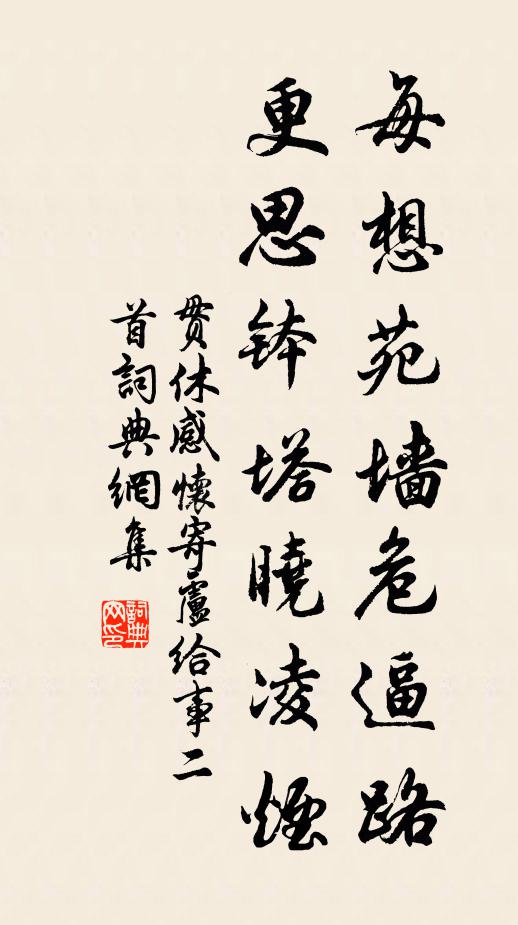 每想苑墻危逼路
更思鉢塔曉凌煙
貫休感懷寄盧給事二
首詞典網集
詞典网印